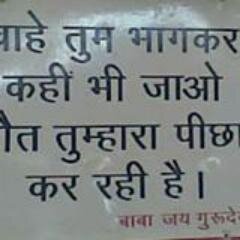 चाहे तुम भागकर
कहीं भी जाओ
मौत तुम्हारा पीछा
कर रही है।
बाबा जय गुरूदेव